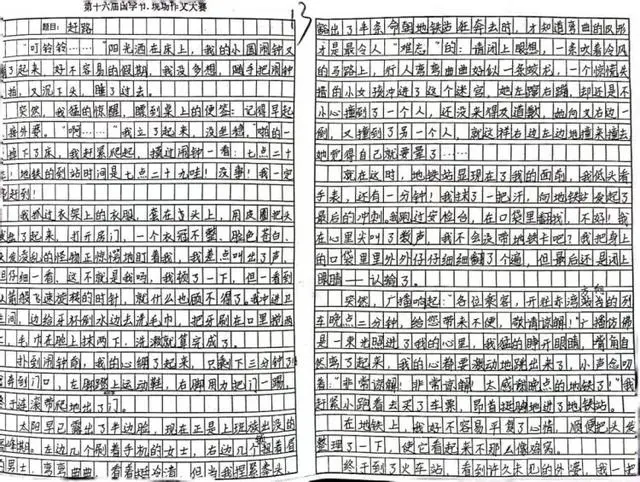 第十六届国学节·现场作文大赛
13
题目：赶路
"叮铃铃……"阳光洒在床上，我的小圆闹钟又
了起来，好不容易的假期，我没多想，随手把闹钟
，又沉下头，睡了过去。
突然，我猛的惊醒，瞟到桌上的便签：记得早起
外婆。"啊……"我立了起来，没坐稳，"啪"的一
下了床，我赶紧爬起，摸过闹钟一看：七点二十
！地铁的到站时间是七点二十九哇！没事！我一定
赶到！
我抓过衣架上的衣服，套在头上，用皮圈把头
了起来，打开房门，一个衣冠不整、脸色苍白、
凌乱的怪物正惊愕地盯着我，我差点叫出了声，
仔细一看，这不就是我吗，我顿了一下，但一看到
箭般飞速旋转的时针，就什么也顾不得了。我冲进卫
间，边给牙杯倒水边去洗毛巾，把牙刷在口里捣两
，毛巾在脸上抹两下，洗漱就算完成了。
扑到闹钟前，我的心绷了起来，只剩下三分钟了
奔到门口，左脚蹬上运动鞋，右脚用力把门一踢，
于连滚带爬地出了门。
太阳早已露出了半边脸，现在正是上班族出没的
高峰期。左边几个刷着手机的女士，右边几个皱着眉
的男士，弯弯曲曲，看着挺冷清，但当我捏紧拳头，
出了半条命朝地铁站狂奔去时，才知道弯曲的队形
才是最令人"难忘"的：请闭上眼想，一条吹着冷风
的马路上，行人弯弯曲曲好似一条蛟龙，一个惊慌失
措的小女孩冲进了这个迷宫，她左躲右躲，却还是不
小心撞到了一个人，还没来得及道歉，她向又右边一
倒，又撞到了另一个人，就这样右边左边地撞来撞去
她觉得自己就要晕了……
就在这时，地铁站显现在了我的面前，我低头看
手表，还有一分钟！我抹了一把汗，向地铁站发起了
最后的冲刺。我刚过安检台，在口袋里翻找，不好！我
在心里尖叫了数声，我不会没带地铁卡吧？我把身上
的口袋里里外外仔仔细细翻了个遍，但最后还是闭上
眼睛——认输了。
突然，广播响起："各位乘客，开往东湾站方向的列
车晚点二分钟，给您带来不便，敬请谅解！"广播仿佛
是一束光照进了我的心里，我猛的睁开眼睛，嘴角自
然弯了起来，我的心都要激动地跳出来了，小声念叨
着："非常谅解！非常谅解！太感谢晚点的地铁了！"我
赶紧小跑着去买了车票，昂首挺胸地进了地铁站。
在地铁上，我好不容易平复了心情，顺便把头发
整理了一下，使它看起来不那么像鸡窝。
终于到了火车站，看到许久未见的外婆，我一把